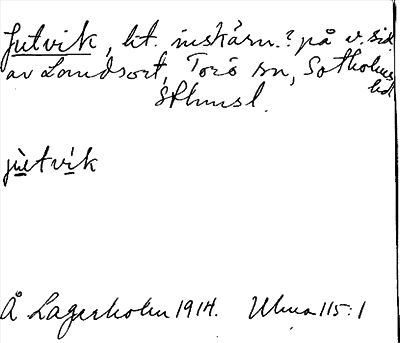 Jutvik, lit. inskärn.? på v. sid.
av Landsort, Torö sn, Sotholms
hd
Sthmsl.
jùtvik
Å Lagerholm 1914. Ulma 115:1